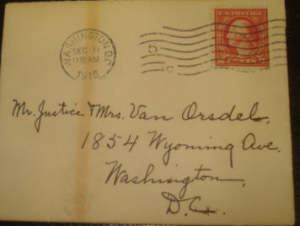 WASHINGTON, D.C.
DEC
1915
Mr. Justice & Mrs. Van Orsdel,
1854 Wyoming Ave.
Washington,
D.C.